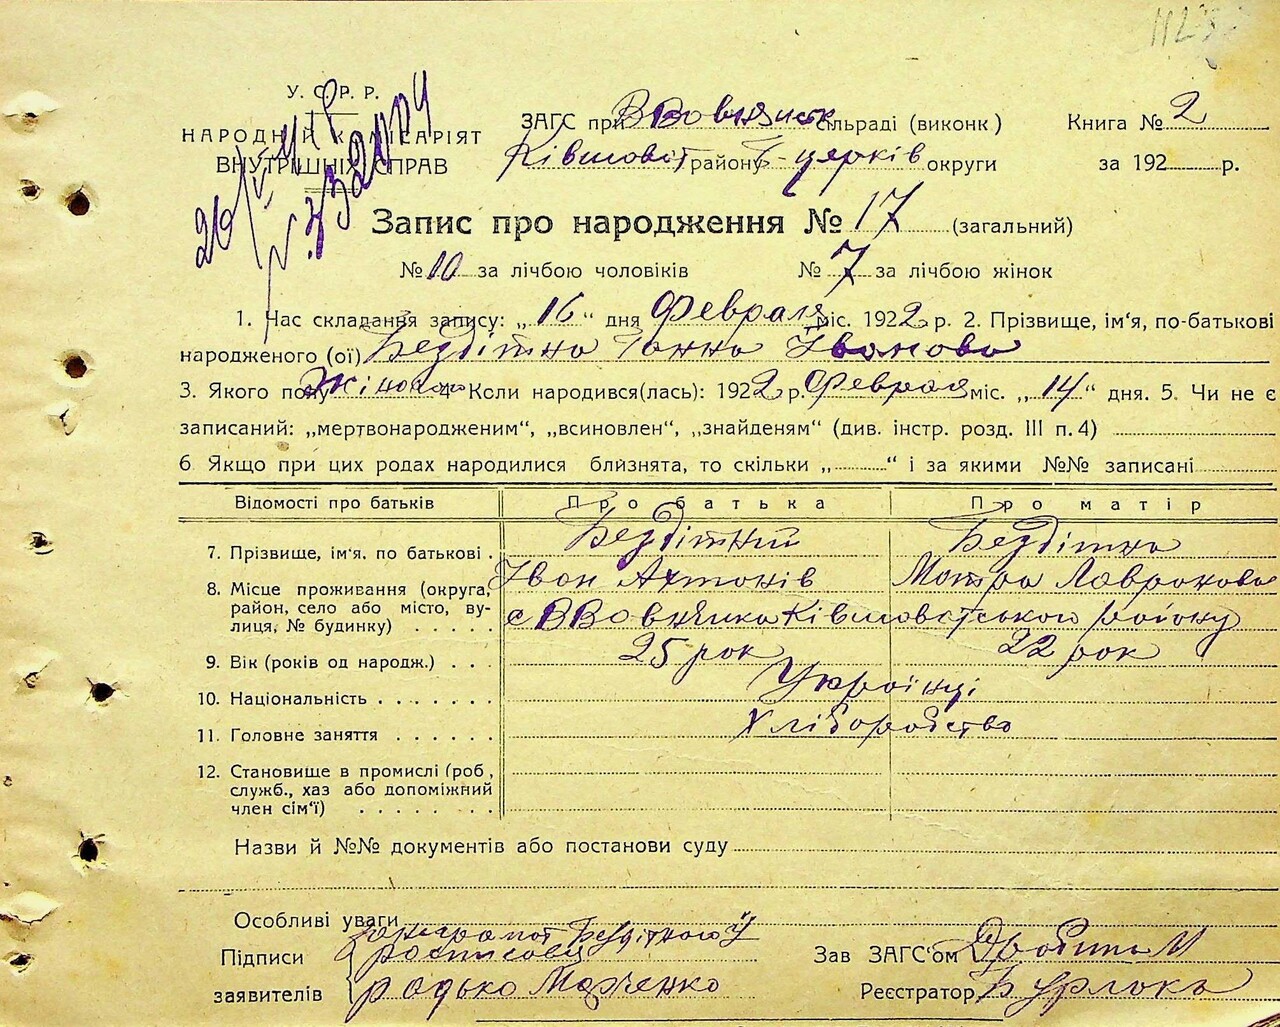 У. С. Р. Р.
НАРОДНІЙ КОМІСАРІЯТ
ВНУТРІШНІХ СПРАВ
ЗАГС при ВВовнянськ сільраді (виконк) Книга № 2
Ківшоват району Б-церків округи за 192 р.
Запис про народження № 17 (загальний)
№ 10 за лічбою чоловіків № 7 за лічбою жінок
1. Час складання запису: „16“ дня Февраля міс. 1922 р. 2. Прізвище, ім'я, по-батькові
народженого (ої) Бездітна Ганна Іванова
3. Якого полу жіночого 4 Коли народився(лась): 1922 р. Февраля міс. „14“ дня. 5. Чи не є
записаний: „мертвонародженим“, „всиновлен“, „знайденям“ (див. інстр. розд. III п. 4)
6 Якщо при цих родах народилися близнята, то скільки „ “ і за якими №№ записані
Відомості про батьків Про батька Про матір
7. Прізвище, ім'я, по батькові . Бездітний Бездітна
Іван Антонів Мотра Лавронова
8. Місце проживання (округа, район, село або місто, вулиця, № будинку) с ВВовнянка Ківшоватського району
9. Вік (років од народж.) . . . 25 рок 22 рок
10. Національність . . . . . . . Українці
11. Головне заняття . . . . . . Хліборобство
12. Становище в промислі (роб, служб., хаз або допоміжний член сім'ї) . . . . . . .
Назви й №№ документів або постанови суду
Особливі уваги
Підписи Бездітного росписовсь Зав ЗАГС'ом
заявителів родько Марченко Реєстратор Бурлака